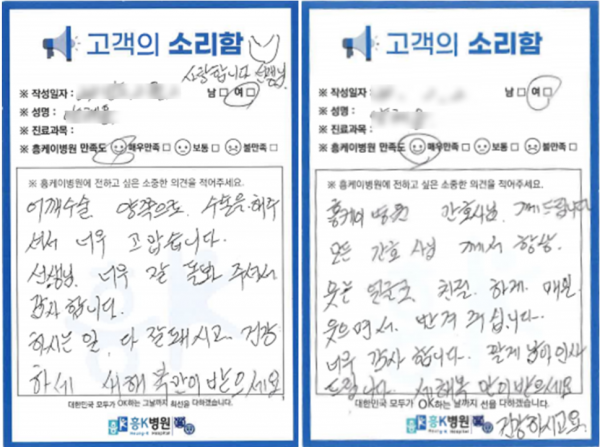 고객의 소리함
사랑합니다 선생님
※ 작성일자 :
남 □ 여 □
※ 성명 :
※ 진료과목 :
※ 흥케이병원 만족도 매우만족 □ 보통 □ 불만족 □
※ 흥케이병원에 전하고 싶은 소중한 의견을 적어주세요.
어깨수술 양쪽으로. 수술을 해주
셔서 너무 고맙습니다.
선생님. 너무 잘 돌봐 주셔서
감사 합니다.
하시는 일. 다 잘돼시고. 건강
하세 새해 복 많이 받으세요
대한민국 모두가 OK하는 그날까지 최선을 다하겠습니다.
흥K병원
고객의 소리함
※ 작성일자 :
남 □ 여 □
※ 성명 :
※ 진료과목 :
※ 흥케이병원 만족도 매우만족 □ 보통 □ 불만족 □
※ 흥케이병원에 전하고 싶은 소중한 의견을 적어주세요.
흥케이 병원 간호사님. 께 드립니다
모든 간호사님 께서 항상.
웃는 얼굴로 친절. 하게. 매일.
웃으면서. 반겨 주십니다.
너무 감사 합니다. 많이 이사
드립니다. 새해복 많이받으세요
대한민국 모두가 OK하는 날까지 최선을 다하겠습니다.
건강하시고요.
흥K병원